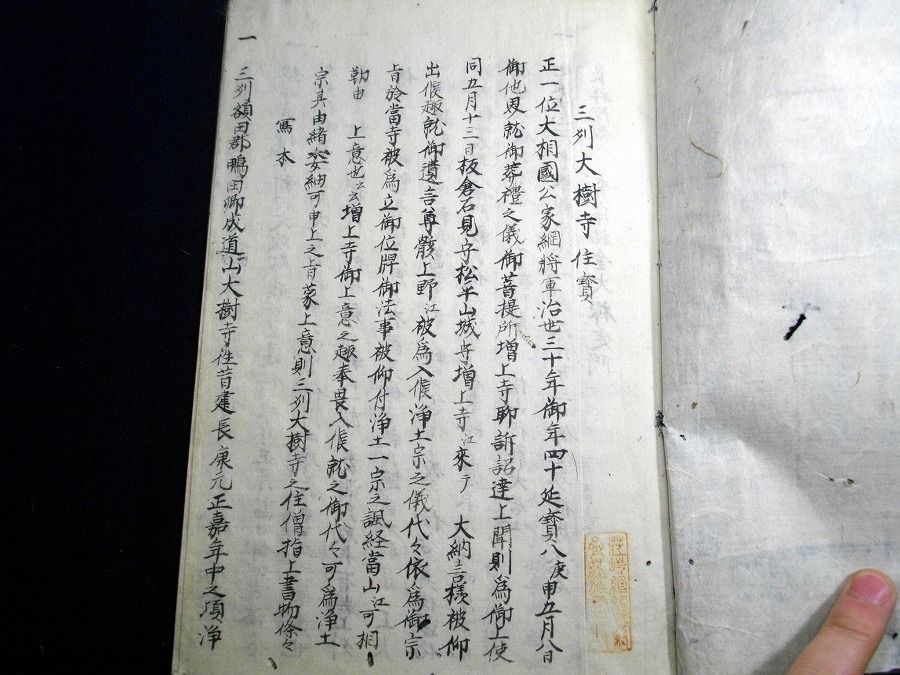 三列大樹寺 住寳
正一位大相國公家綱將軍治世三十年御年四十延寳八庚申五月八日
御他界就御葬禮之儀御菩提所増上寺聊訴詔達上聞則為御上使
同五月十三日板倉石見守松平山城守増上寺江來テ 大納言様被仰
出候趣就御遺言尊骸上野江被為入候浄土宗之儀代々依為御宗
旨於當寺被為立御位牌御法事被仰付浄土一宗之諷経當山江可相
勤由 上意也云云増上寺御上意之趣奉畏入候就之御代々可為浄土
宗其由緒委細可申上之旨蒙上意則三列大樹寺之住僧指上書物條々
寫本
一 三列額田郡鴨田郷成道山大樹寺往昔建長康元正嘉年中之頃浄